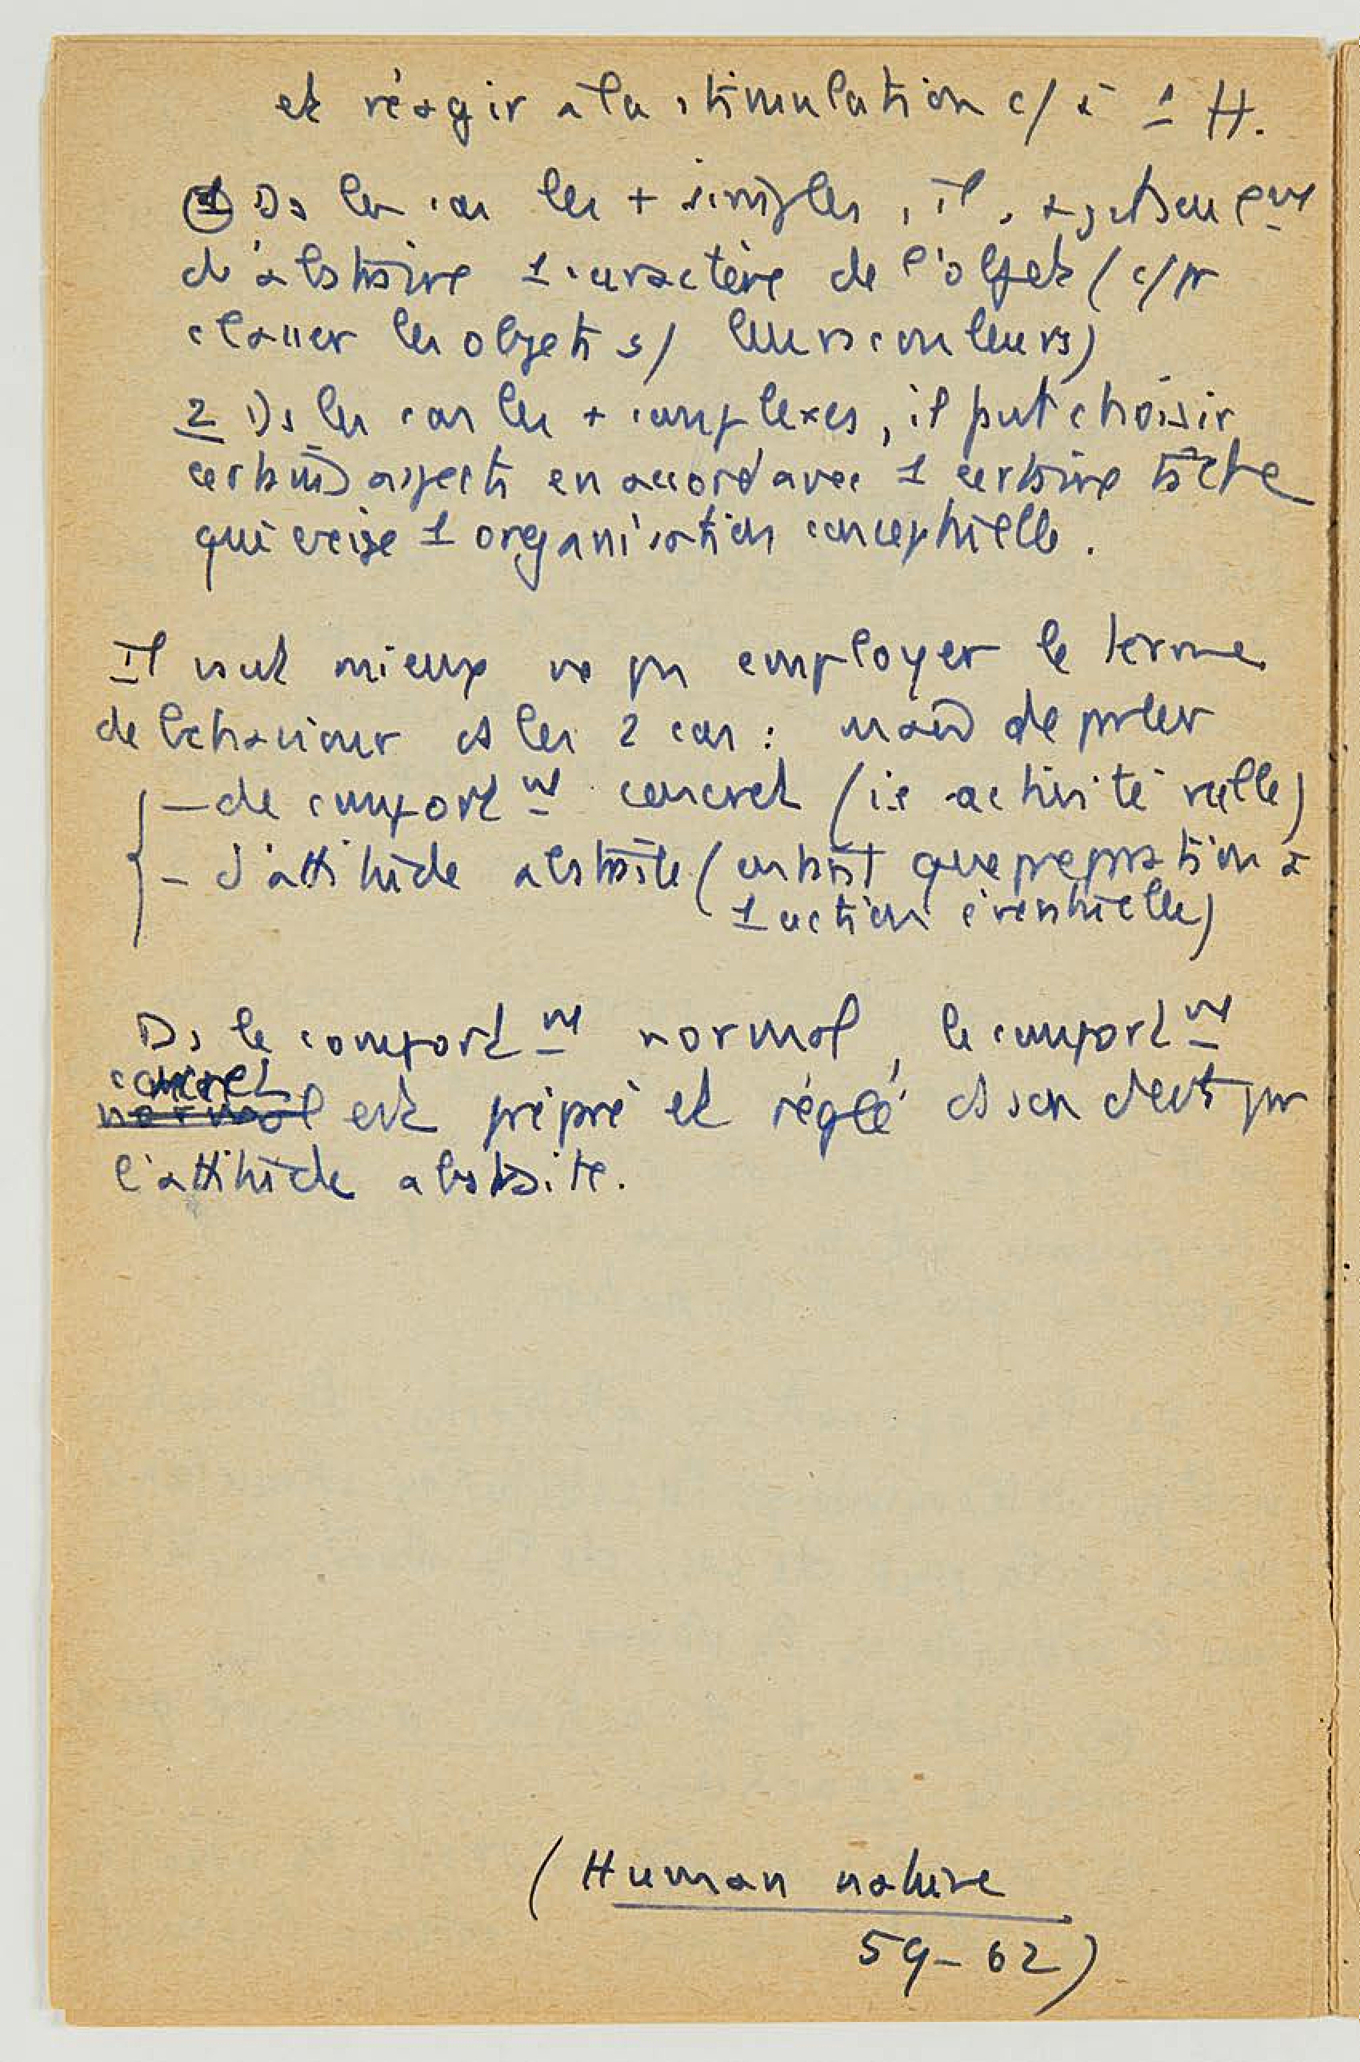 et réagir à la stimulation c/ à 1 H.
1 Ds les cas les + simples, il s'agit seulemt
d'abstraire 1 caractère de l'objet (c/ pr
classer les objets s/ leurs couleurs)
2 Ds les cas les + complexes, il peut choisir
certains aspects en accord avec 1 certaine tâche
qui exige 1 organisation conceptuelle.
Il vaut mieux ne pas employer le terme
de behaviour ds les 2 cas : mais de parler
— de comportmt concret (ie activité réelle)
— d'attitude abstraite (en tant que préparation à
1 action éventuelle)
Ds le comportmt normal, le comportmt
concret
normal est préparé et réglé ds son départ par
l'attitude abstraite.
(Human nature
59-62)